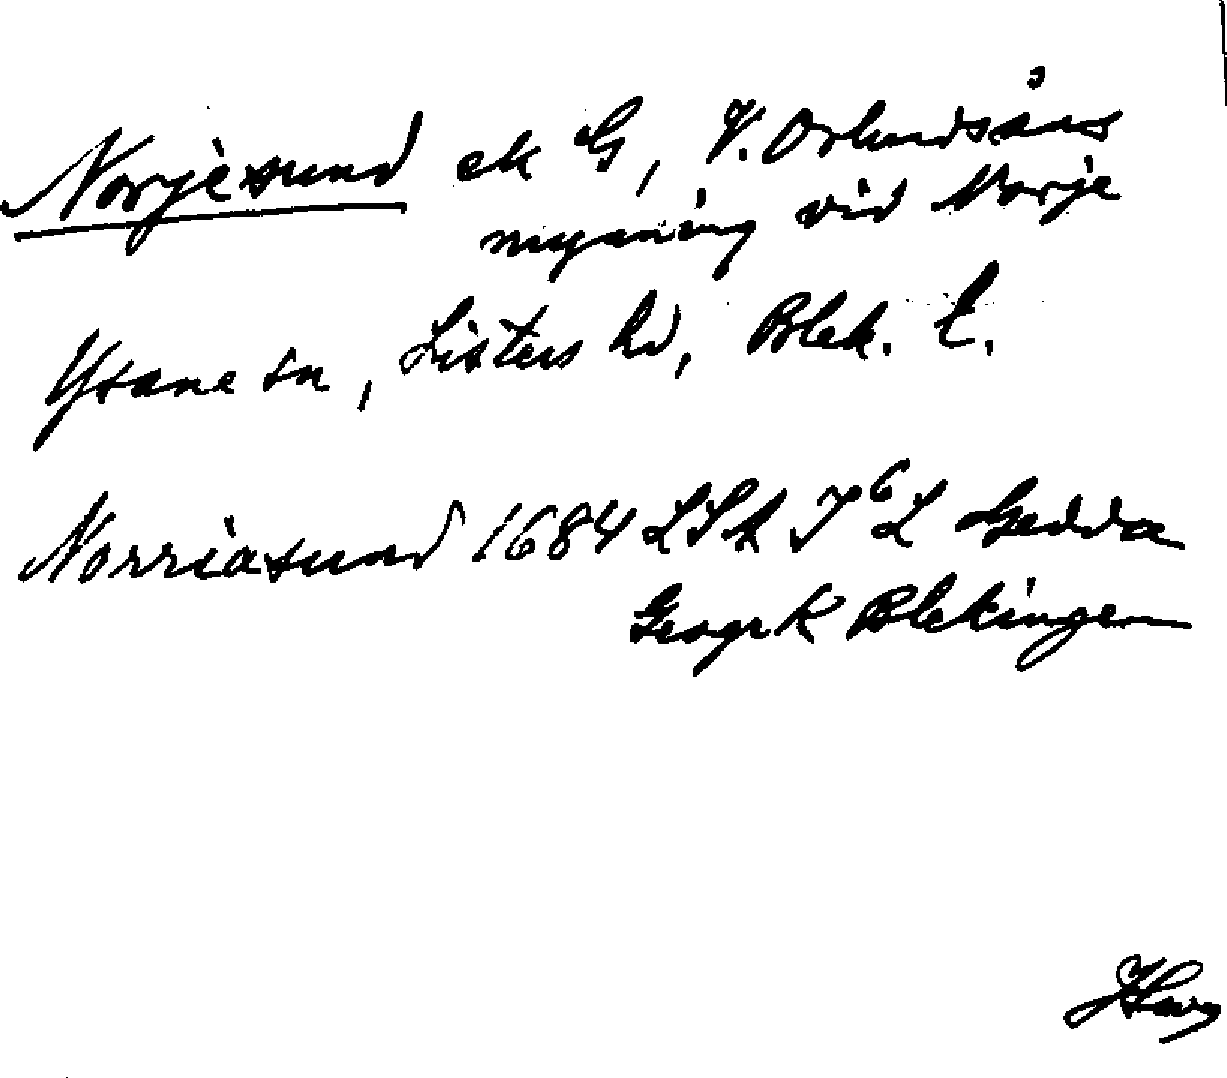 Norjesund ek G, V. Orlundsåns
mynning vid Norje
Ysane sn, Listers hd, Blek. l.
Norriasund 1684 LSA I 6 L Gedda
Geogr K Blekingen